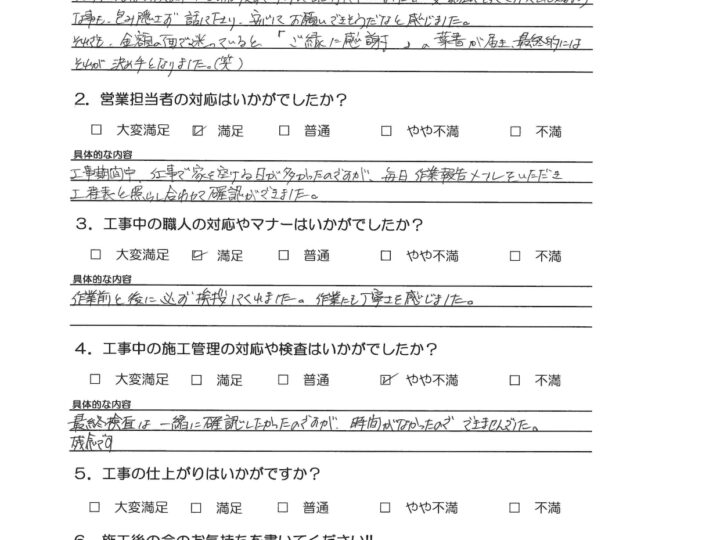 な事も、包み隠さず話して下さり、安心してお願いできそうだなと感じました。
それでも、金額の面で迷っていると「ご縁に感謝!」の葉書が届き、最終的には
それが決め手となりました。(笑)
2．営業担当者の対応はいかがでしたか？
□ 大変満足 ☑ 満足 □ 普通 □ やや不満 □ 不満
具体的な内容
工事期間中、仕事で家を空ける日が多かったのですが、毎日作業報告メールをいただき
工程表と照らし合わせて確認ができました。
3．工事中の職人の対応やマナーはいかがでしたか？
□ 大変満足 ☑ 満足 □ 普通 □ やや不満 □ 不満
具体的な内容
作業前と後に必ず挨拶してくれました。作業にも丁寧さを感じました。
4．工事中の施工管理の対応や検査はいかがでしたか？
□ 大変満足 □ 満足 □ 普通 ☑ やや不満 □ 不満
具体的な内容
最終検査は一緒に確認したかったのですが、時間がなかったのでできませんでした。
残念です
5．工事の仕上がりはいかがですか？
□ 大変満足 □ 満足 □ 普通 □ やや不満 □ 不満
6．施工後の今のお気持ちを書いてください!!